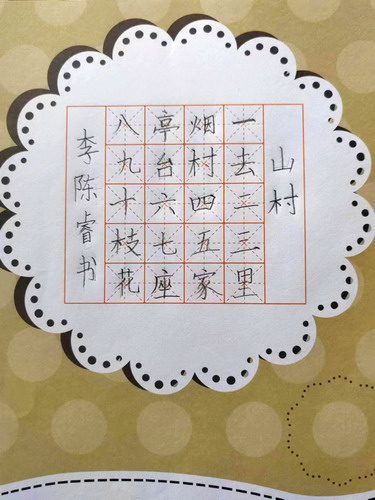 山村
一去二三里
烟村四五家
亭台六七座
八九十枝花
李陈睿书